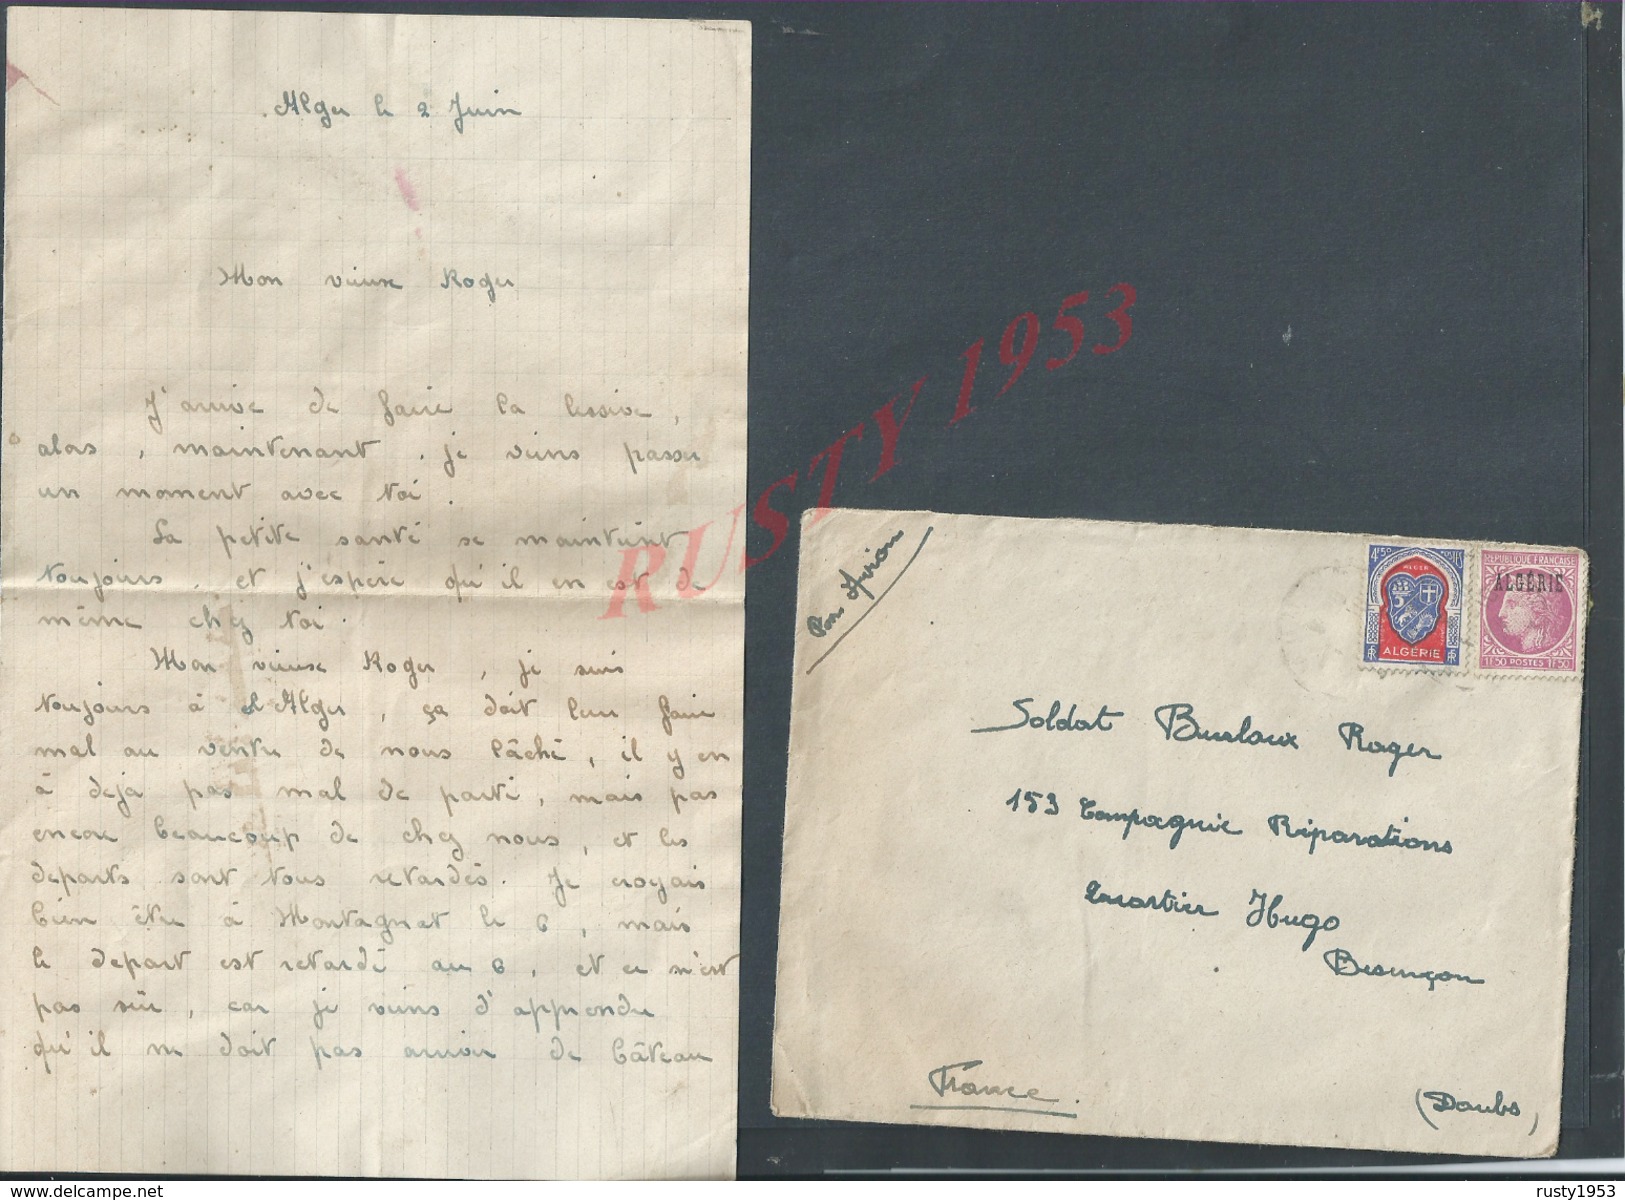 Alger le 2 Juin
Mon vieux Roger
J'arrive de faire la lessive,
alors, maintenant, je viens passer
un moment avec toi.
La petite santé se maintient
toujours, et j'espère qu'il en est de
même chez toi.
Mon vieux Roger, je suis
toujours à Alger, ça doit leur faire
mal au ventre de nous lâché, il y en
à deja pas mal de parti, mais pas
encore beaucoup de chez nous, et les
departs sont tous retardés. Je croyais
bien être à Montagnat le 6, mais
le depart est retardé au 6, et ce n'est
pas sûr, car je viens d'apprendre
qu'il ne doit pas arriver de bâteau
RUSTY 1953
Par Avion
4F50 POSTES
ALGER
ALGERIE
RF RF
REPUBLIQUE FRANÇAISE
ALGÉRIE
1F50 POSTES 1F50
Soldat Burlaux Roger
153 Compagnie Réparations
Quartier Hugo
Besançon
France.
(Doubs)
Delcampe.net
rusty1953